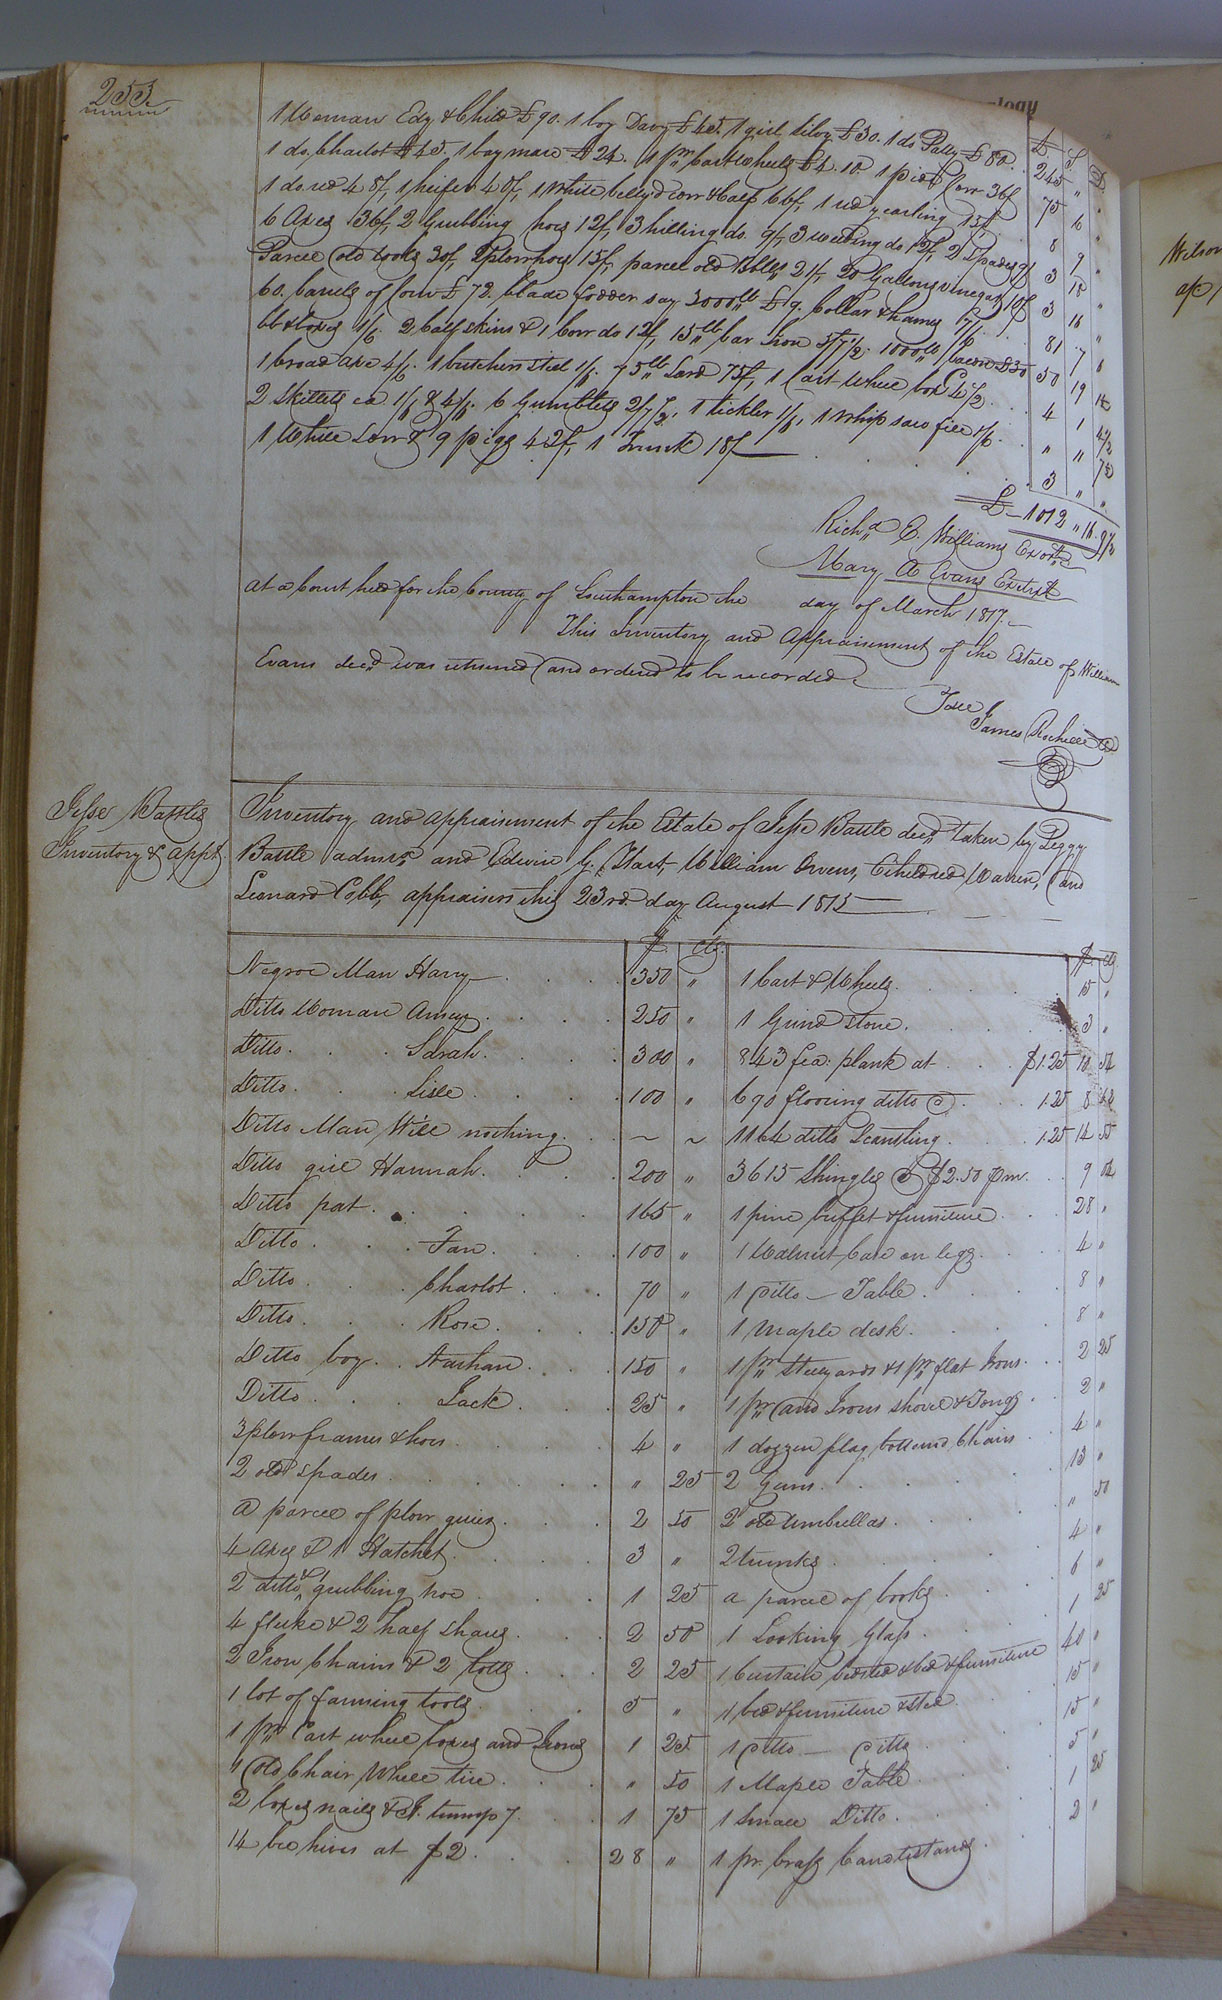 253
1 Woman Edy & Child £90. 1 boy Davy £45. 1 girl Silvy £30. 1 do Patty £80.
£ S D
245 " "
1 do. Charlot £45. 1 bay mare £24. 1 pr Cart Wheels £4.10. 1 pied Cow 36/
75 6 "
1 do red 48/, 1 heifer 40/, 1 White belly'd cow & Calf 66/, 1 red yearling 15/
8 9 "
6 Axes 36/, 2 Grubbing hoes 12/, 3 hilling do. 9/, 3 weeding do 12/, 2 Spades 9/
3 18 "
Parcel old tools 30/, 2 plow hoes 15/, parcel old Bbls, 21/, 20 Gallons vinegar 10/
3 16 "
60. barrels of Corn £72. blade fodder say 3000 lb £9. Collar & hames 7/
81 7 6
bb & boxes 1/6. 2 Calf skins & 1 Cow do 12/, 15 lb bar Iron 5/7½. 1000 lb bacon £30
50 19
1 broad axe 4/6. 1 butchers steel 1/6. 75 lb Lard 75/, 1 Cart Wheel box 4½
4 1 4½
2 Skillets ea. 1/6 & 4/6. 6 Gumblets 2/7½. 1 tickler 1/6, 1 whip saw file 1/6
" "
1 White Sow & 9 pigs 42/, 1 Trunk 18/
3 " "
£ 1012 " 16.
Richd. E. Williams Exor
Mary A Evans Extrix
At a Court held for the County of Southampton the day of March 1817.
This Inventory and Appraisement of the Estate of William
Evans decd. was returned and ordered to be recorded
Teste
James Rochelle
Jesse Battles
Inventory & Appt.
Inventory and appraisement of the Estate of Jesse Battle decd. taken by Peggy
Battle admrx. and Edwin G. Hart, William Owens, Childred Warren, and
Leonard Cobb, appraisers this 23rd. day August 1815
$ Cts.
$ Cts
Negroe Man Harry 350 " 1 Cart & Wheels 15 "
Ditto Woman Amey 250 " 1 Grind stone 3 "
Ditto Sarah 300 " 843 fea: plank at $1.25 10 54
Ditto Lisle 100 " 670 flooring ditto @ 1.25 8
Ditto Man Will nothing ~ ~ 1164 ditto Scantling 1.25 14 55
Ditto girl Hannah 200 " 3615 Shingles @ $2.50 pm 9 04
Ditto pat 165 " 1 pine buffet & furniture 28 "
Ditto Fan 100 " 1 Walnut Case on legs 4 "
Ditto Charlot 70 " 1 Ditto - Table 8 "
Ditto Rose 150 " 1 Maple desk 8 "
Ditto boy Nathan 150 " 1 pr Stillyards & 1 pr flat Irons 2 25
Ditto Jack 25 " 1 pr And Irons shovel & Tongs 2 "
3 plow frames & hoes 4 " 1 dozzen flag bottomd Chairs 4 "
2 old spades " 25 2 Guns 13 "
A parcel of plow guiez 2 50 2 old umbrellas " 50
4 axes & 1 Hatchet 3 " 2 trunks 4 "
2 ditto & 1 grubbing hoe 1 25 a parcel of books 6 "
4 fluke & 2 half Shares 2 50 1 Looking Glass 1 25
2 Iron Chains & 2 Colts 2 25 1 Curtain bedsted & bed & furniture 40 "
1 lot of farming tools 5 " 1 bed & furniture & sted 15 "
1 pr Cart wheel boxes and Irons 1 25 1 Ditto - Ditto 15 "
4 Old Chair Wheel tire " 50 1 Maple Table 5 "
2 boxes nails 1 75 1 Small Ditto 1 25
14 bee hives at $2 28 " 1 pr. brass Candlestands 2 "